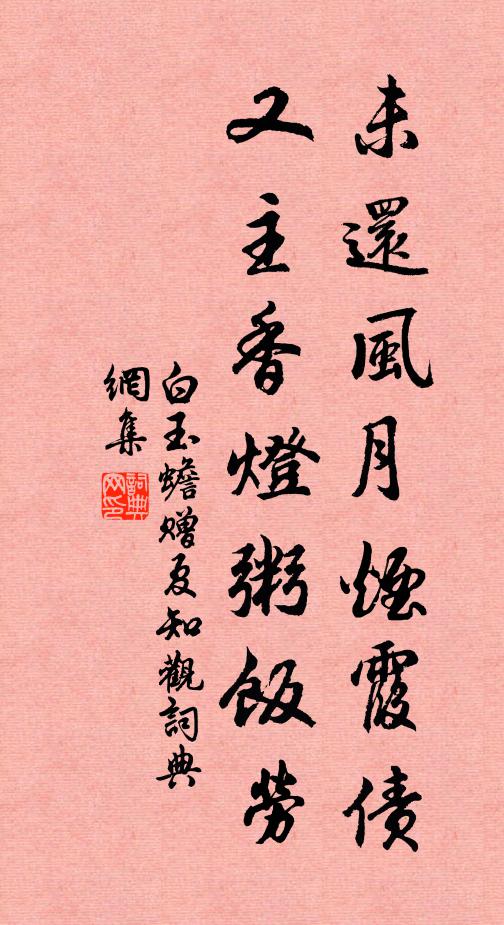 未還風月煙霞債
又主香燈粥飯勞
白玉蟾贈夏知觀詞典
網集
詞典網印